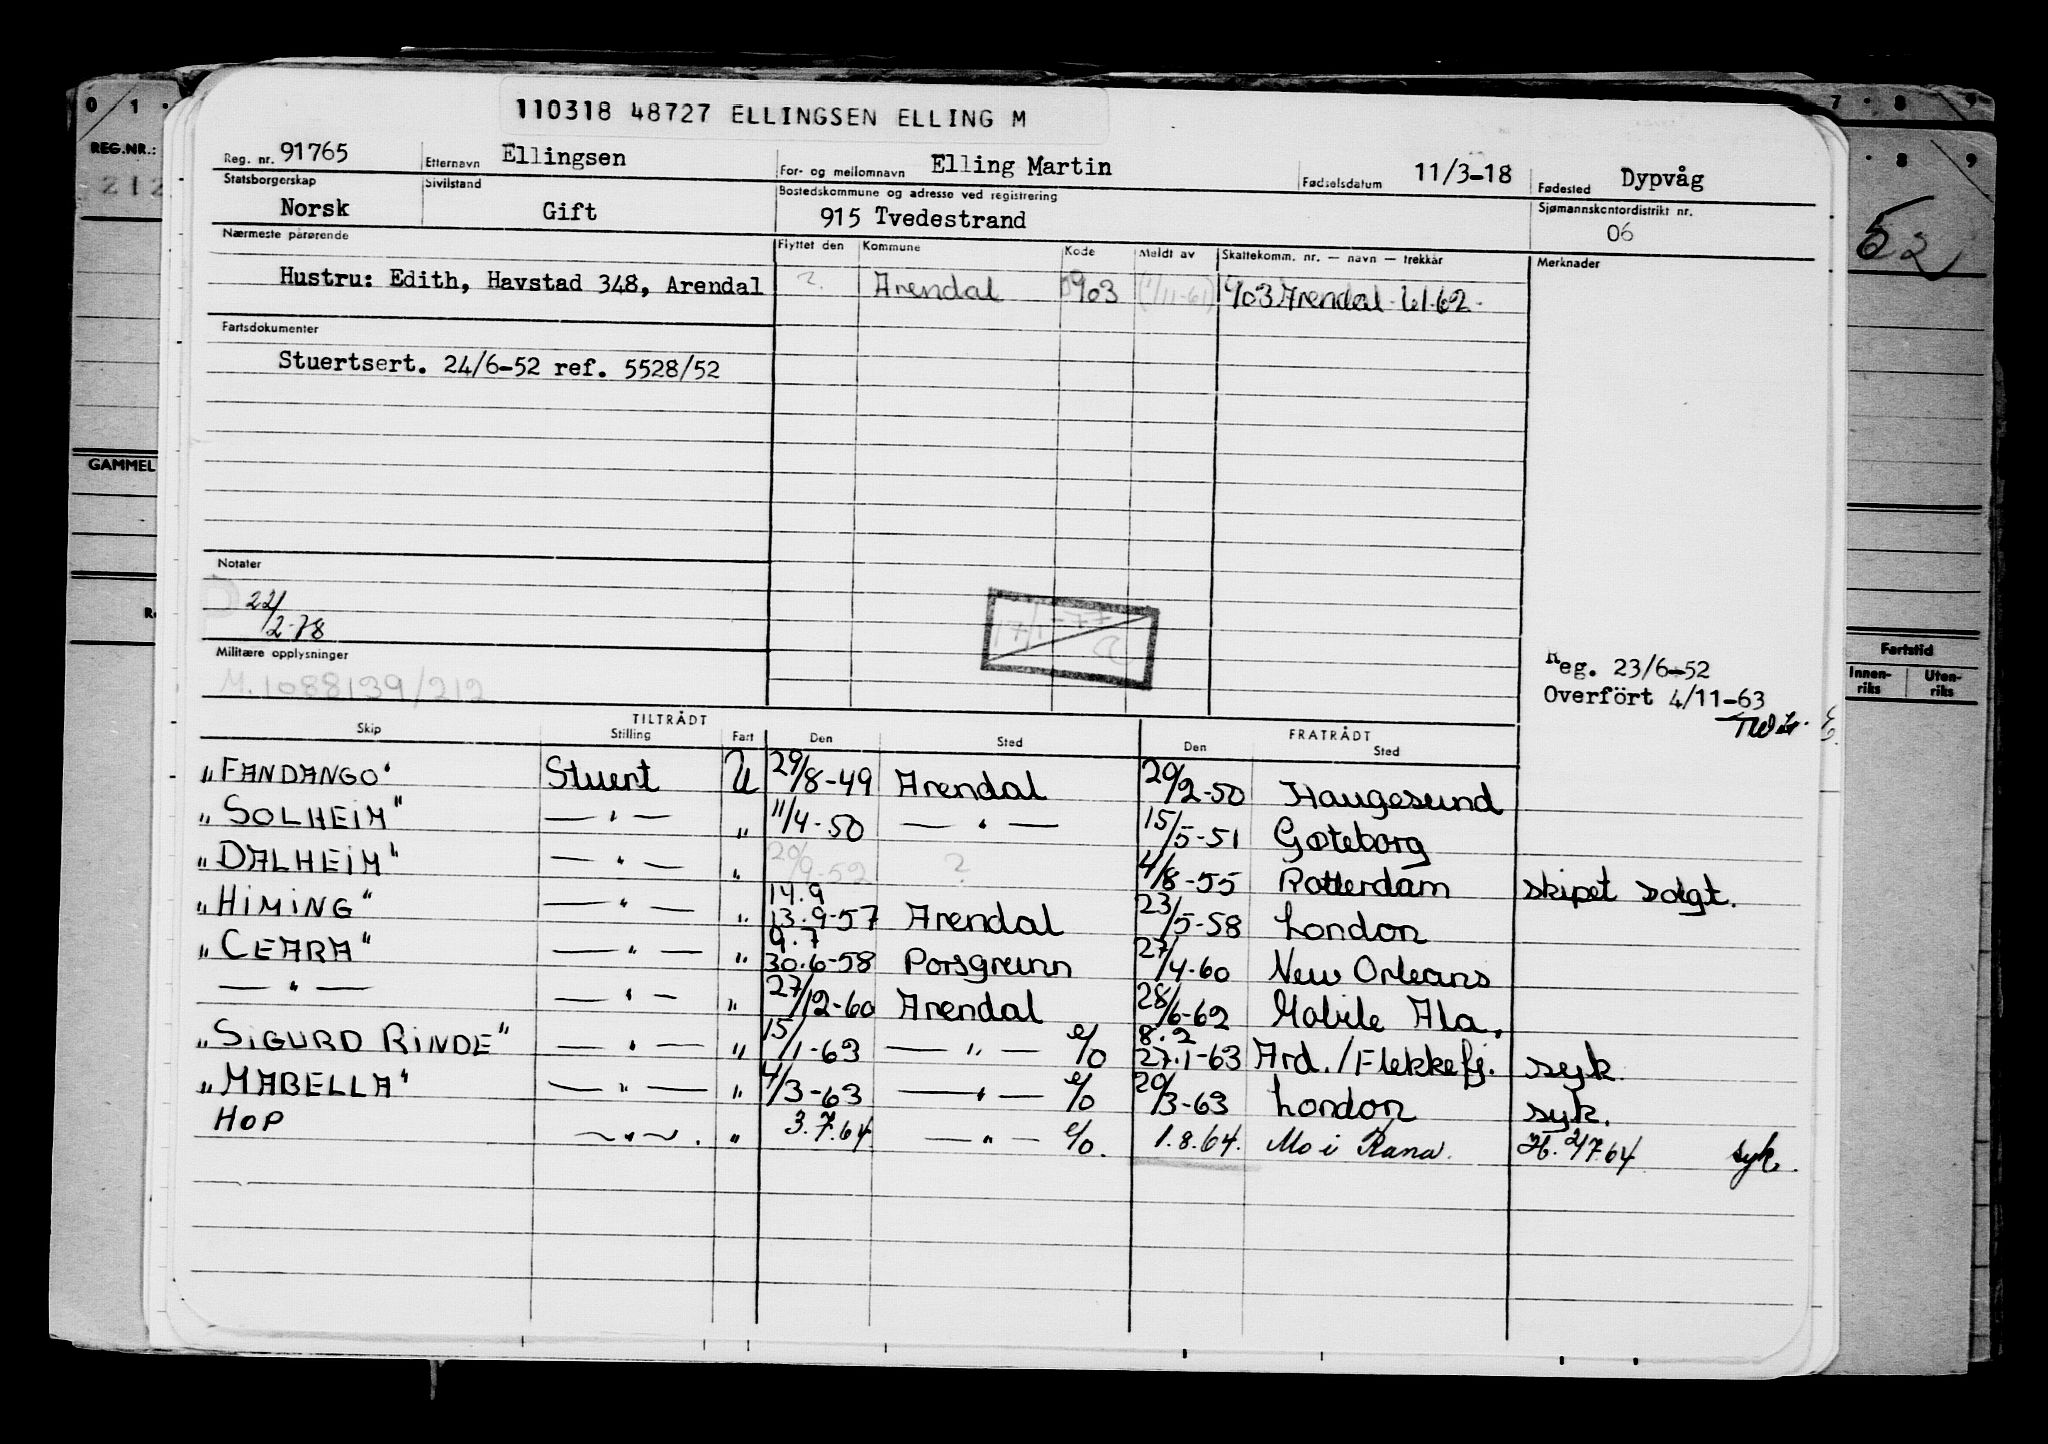 0 1 · 7 · 8 9
110318 48727 ELLINGSEN ELLING M
REG.NR.: 212
· 8 9
52
Reg. nr. 91765 Etternavn Ellingsen For- og mellomnavn Elling Martin Fødselsdatum 11/3-18 Fødested Dypvåg
Statsborgerskap Norsk Sivilstand Gift Bostedskommune og adresse ved registrering 915 Tvedestrand Sjømannskontordistrikt nr. 06
Nærmeste pårørende Flyttet den Kommune Kode Meldt av Skattekomm. nr. — navn — trekkår Merknader
Hustru: Edith, Havstad 348, Arendal ? Arendal 0903 (1/11-61) 903 Arendal 61.62.
Fartsdokumenter
Stuertsert. 24/6-52 ref. 5528/52
GAMMEL
Notater
22/2-78
17/1-77
Militære opplysninger
M.1088139/212
Reg. 23/6-52
Overført 4/11-63
Fartstid
Innen-riks Uten-riks
TILTRÅDT FRATRÅDT
Skip Stilling Fart Den Sted Den Sted
"FANDANGO" Stuert U 29/8-49 Arendal 20/2-50 Haugesund
"SOLHEIM" — " — " 11/4-50 — " — 15/5-51 Gøteborg
"DALHEIM" — " — " 20/9-52 ? 4/8-55 Rotterdam skipet solgt.
"HIMING" — " — " 14.9 13.9-57 Arendal 23/5-58 London
"CEARA" — " — " 9.7 30.6-58 Porsgrunn 27/4-60 New Orleans
— " — — " — " 27/12-60 Arendal 28/6-62 Mobile Ala.
"SIGURD RINDE" — " — " 15/1-63 — " — e/o 8.2 27.1-63 Ard./Flekkefj. syk
"MABELLA" — " — " 4/3-63 — " — e/o 20/3-63 London syk.
HOP — " — . " 3.7.64 — " — e/o. 1.8.64. Mo i Rana. syk.